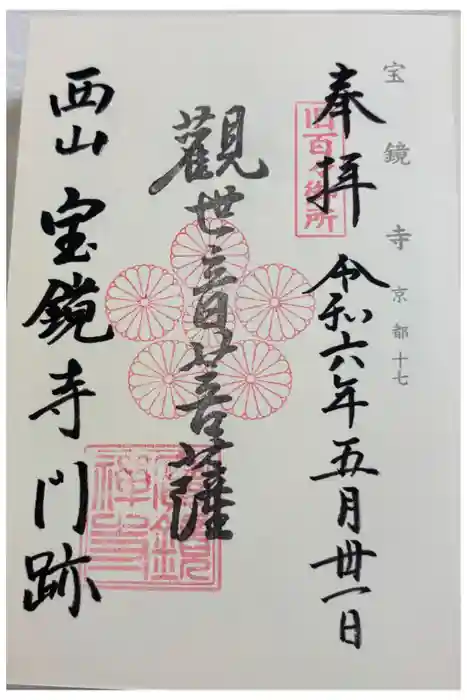 宝鏡寺 京都十七
奉拝
旧百々御所
令和六年五月卅一日
觀世音菩薩
西山 宝鏡寺門跡